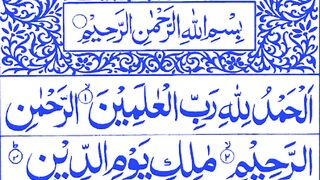 بِسْمِ اللهِ الرَّحْمٰنِ الرَّحِيْمِ
اَلْحَمْدُ لِلّٰهِ رَبِّ الْعٰلَمِيْنَ ۙ‏﴿۱﴾ الرَّحْمٰنِ
الرَّحِيْمِ ۙ‏﴿۲﴾ مٰلِكِ يَوْمِ الدِّيْنِ ؕ‏